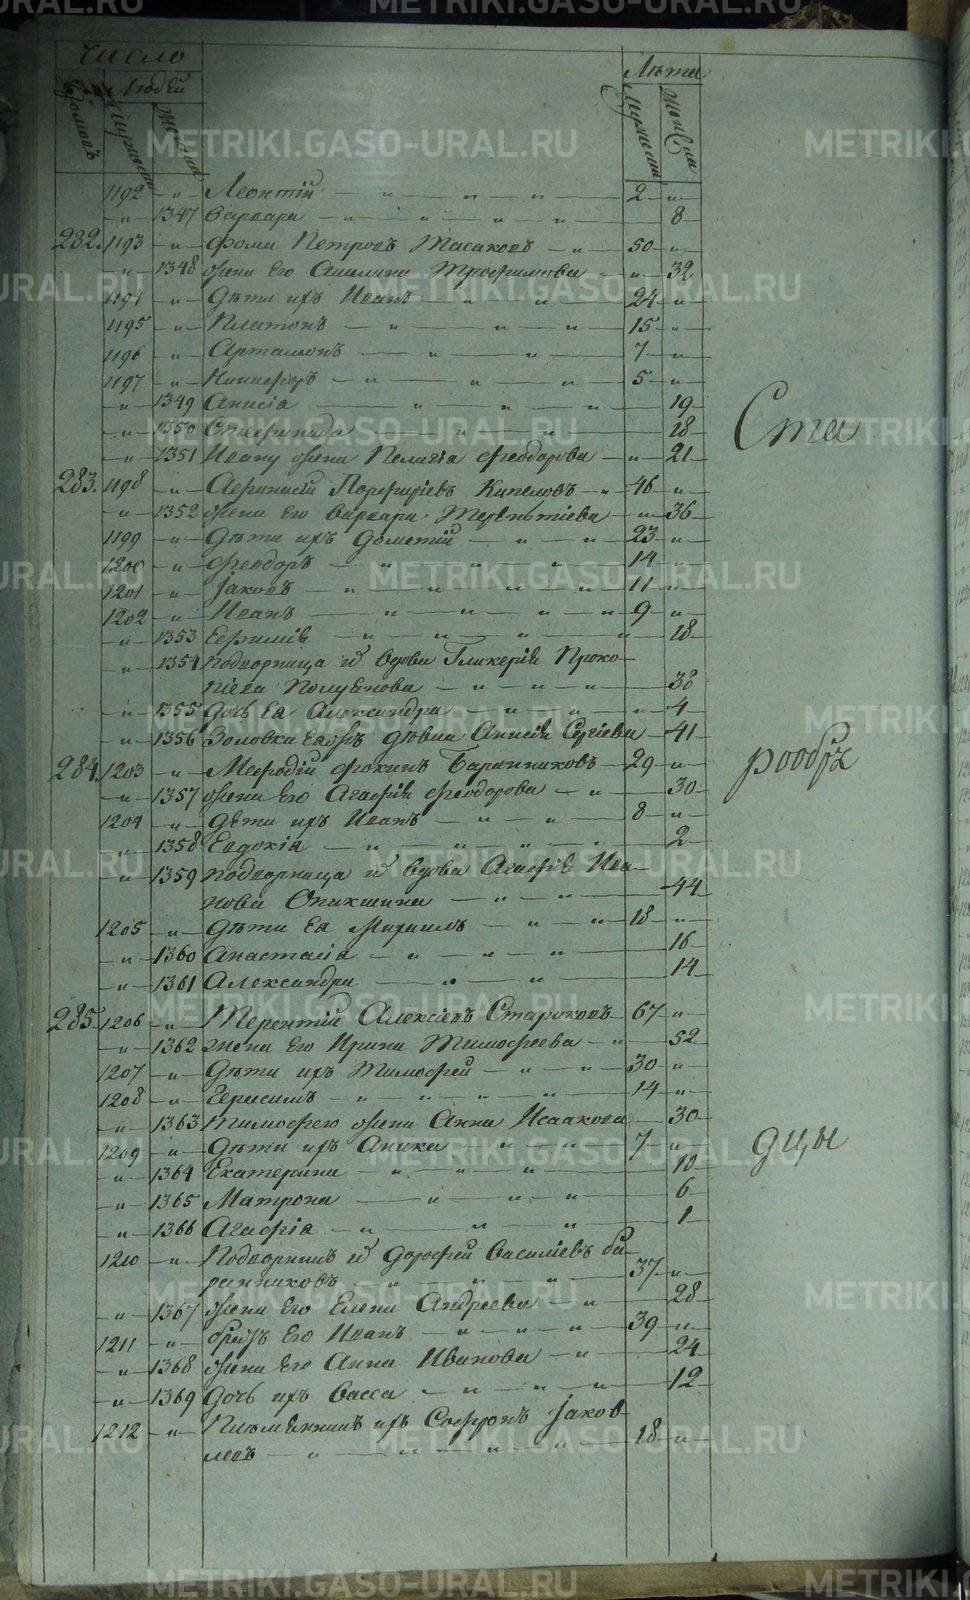 METRIKI.GASO-URAL.RU
Число
Людей
Лѣта
Домовъ Мужеска Женска
Мужеска Женска
1192 " Леонтій 2 "
" 1347 Варвара " 8
282. 1193 " Фома Петровъ Масаковъ 50 "
" 1348 жена Его Акилина Трофимова " 32
1194 " Дѣти ихъ Иванъ 24 "
1195 " Платонъ 15 "
1196 " Артамонъ 7 "
1197 " Никифоръ 5 "
" 1349 Анисіа 19
" 1350 Стефанида 18
" 1351 Ивану жена Пелагіа Феодорова " 21
283. 1198 " Афанасій Порфиріевъ Кипеловъ 46 "
" 1352 жена Его Варвара Терентіева " 36
1199 " Дѣти ихъ Дометій 23 "
1200 " Феодоръ 14 "
1201 " Іаковъ 11 "
1202 " Иванъ 9 "
" 1353 Евфиміа 18
" 1354 подворница и вдова Гликеріа Проко-
піева Полуянова 38
" 1355 Дочь Ея Александра 4
" 1356 Золовка Еяжъ дѣвка Анисіа Сергіева 41
284. 1203 " Мефодій Фокинъ Баранниковъ 29 "
" 1357 жена Его Агафіа Феодорова 30
1204 " Дѣти ихъ Иванъ 8 "
" 1358 Евдокіа 2
" 1359 подворница и вдова Агафіа Ива-
нова Опакшина 44
1205 " Дѣти Ея Михаилъ 18 "
" 1360 Анастасіа 16
" 1361 Александра 14
285. 1206 " Терентій Алексіевъ Стариковъ 67 "
" 1362 жена Его Ирина Тимофеева 52
1207 " Дѣти ихъ Тимофей 30 "
1208 " Герасимъ 14 "
" 1363 Тимофею жена Анна Исаакова 30
1209 " Дѣти ихъ Аника 7 "
" 1364 Екатерина 10
" 1365 Матрона 6
" 1366 Агафіа 1
1210 " Подворникъ и Дорофей Василіевъ Ба-
ранниковъ 37 "
" 1367 жена Его Елена Андреева 28
1211 " братъ Его Иванъ 39 "
" 1368 жена Его Анна Иванова 24
" 1369 Дочь ихъ Васса 12
1212 " Племянникъ ихъ Софронъ Іаков-
левъ 18 "
Ста
рообря
дцы